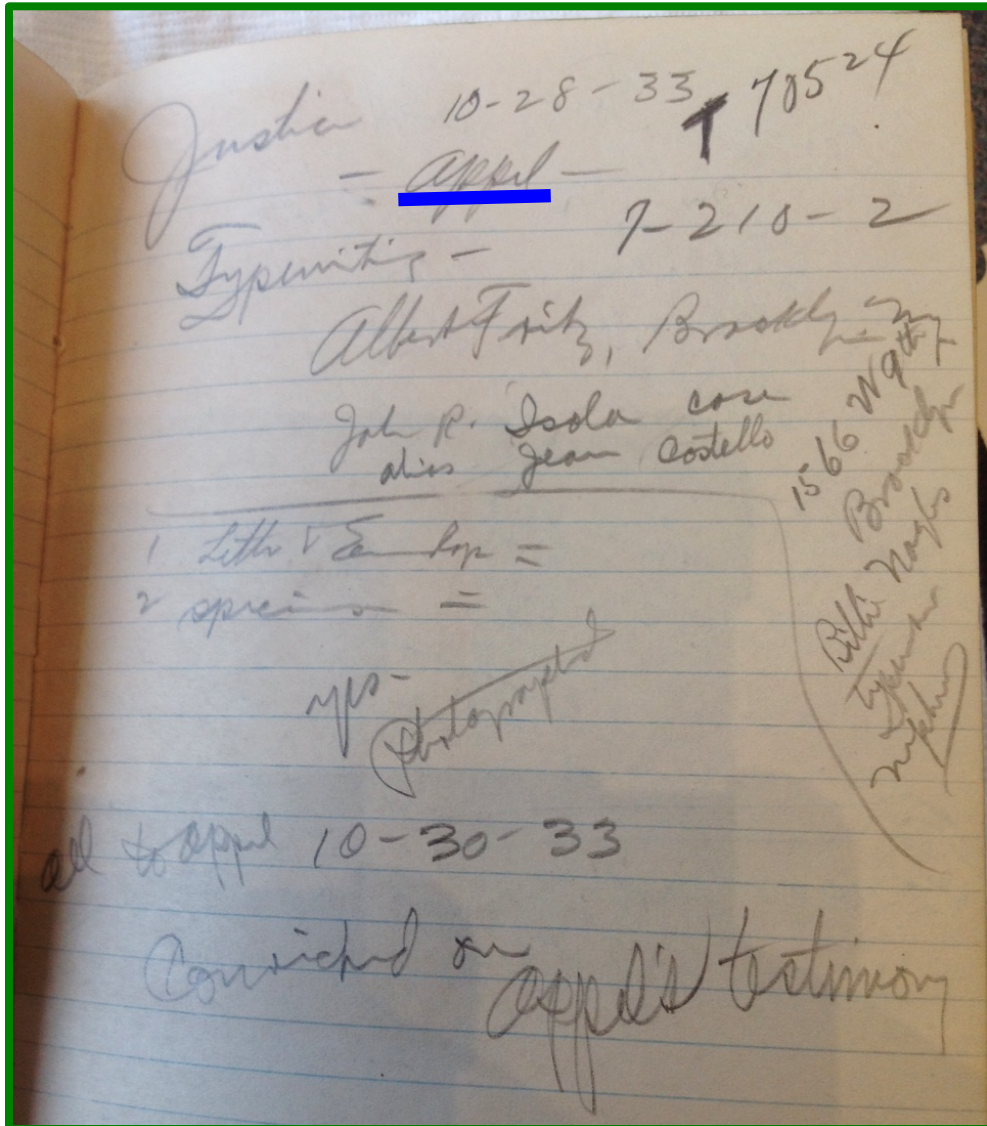 Justice 10-28-33 T 70524
- Appel -
Typewriting - 7-210-2
Albert Fritz, Brooklyn
John R. Isola case
alias Jean Costello
1 Letter & Envelop =
2 specimens =
yes -
Photographed
1566 W 9th
Brooklyn
all to Appel 10-30-33
Convicted on Appel's testimony